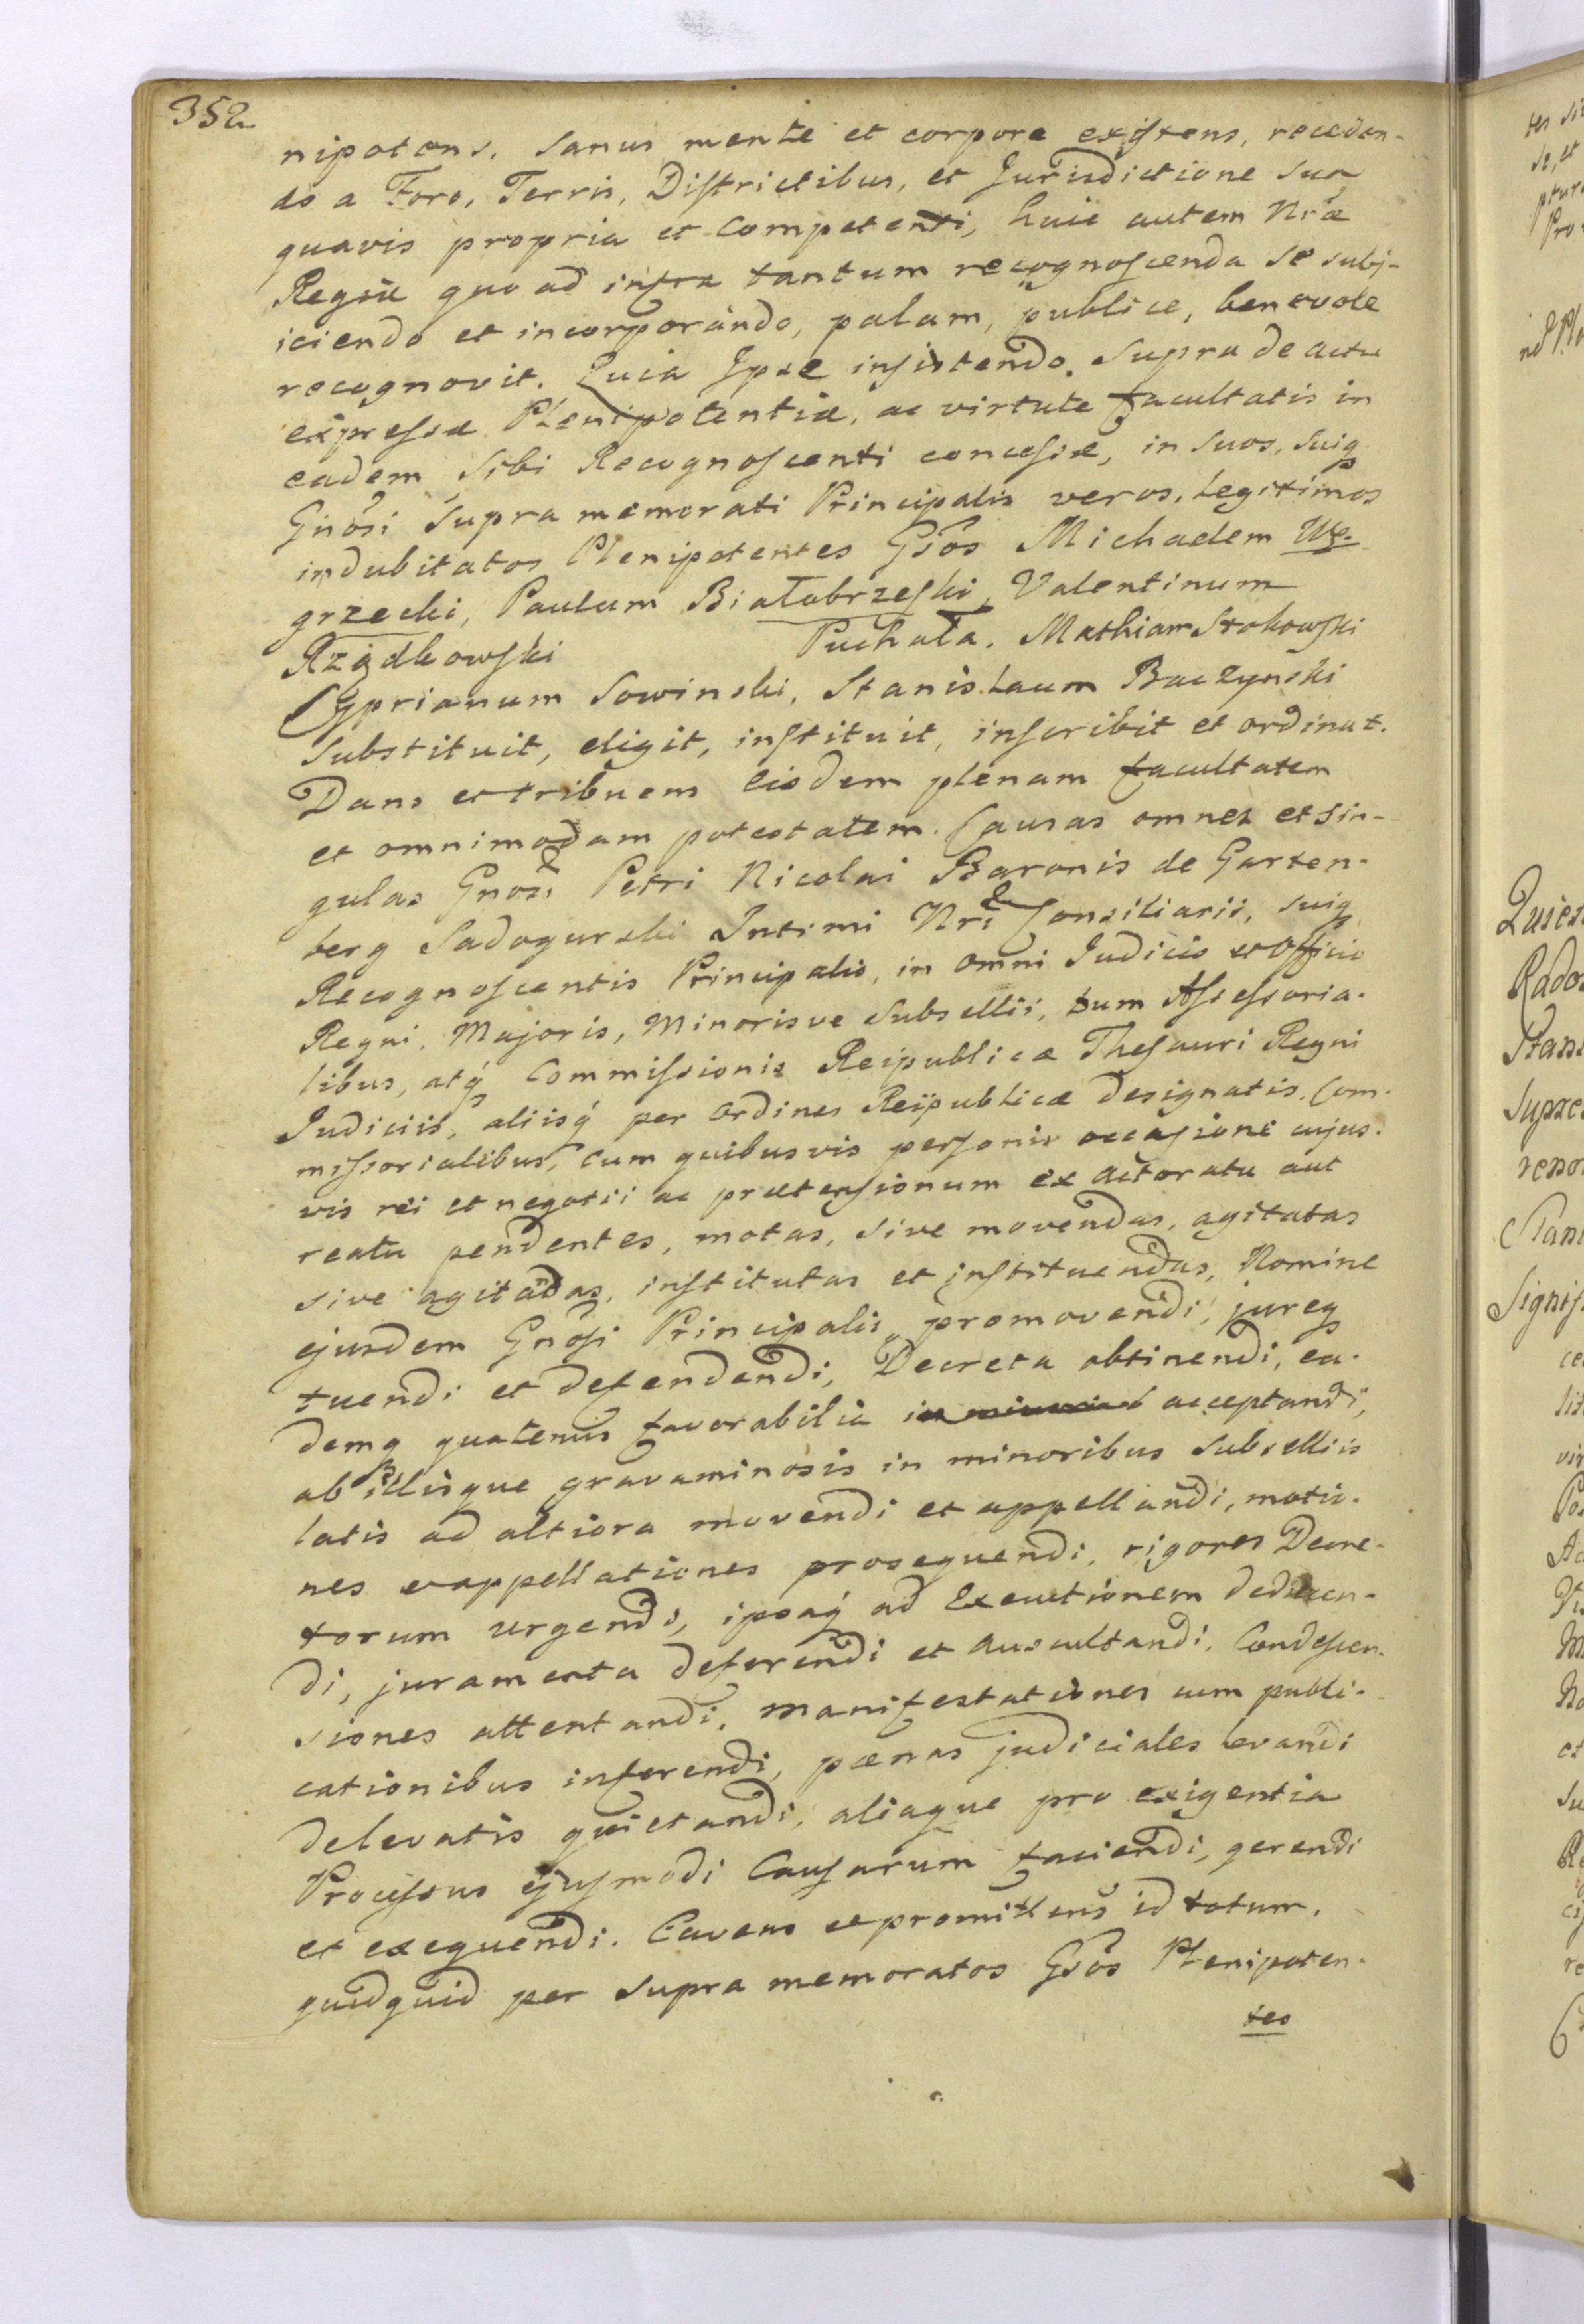 352
nipotens, sanus mente et corpore existens, receden-
do a Foro, Terris, Districtibus, et Jurisdictione sua
quavis propria et Competenti, huic autem Nræ
Regiæ quo ad infra tantum recognoscenda se subj-
iciendo et incorporando, palam, publice, benevole
recognovit. Quia Ipse insistendo supra de actu
expressæ Plenipotentiæ, ac virtute facultatis in
eadem sibi Recognoscenti concessæ, in suos, suiq
Gnosi supra memorati Principalis veros, Legitimos
indubitatos Plenipotentes Gsos Michaelem Wę-
grzecki, Paulum Białobrzeski, Valentinum
Rządkowski Puchała, Mathiam Stokowski
Cyprianum Sowinski, Stanislaum Baczynski
substituit, eligit, instituit, inscribit et ordinat.
Dans et tribuens eisdem plenam facultatem
et omnimodam potestatem. Causas omnes et sin-
gulas Gnosi Petri Nicolai Baronis de Garten-
berg Sadogurski Intimi Nri Consiliarii, suiq
Recognoscentis Principalis, in omni Judicio et Officio
Regni, Majoris, Minorisve Subsellii, tum Assessoria-
libus, atq Commissionis Reipublicæ Thesauri Regni
Judiciis, aliisq per Ordines Reipublicæ designatis, Com-
missorialibus, cum quibusvis personis occasione cujus-
vis rei et negotii ac prætensionum ex actoratu aut
reatu pendentes, motas, sive movendas, agitatas
sive agitādas, institutas et instituendas, Nomine
ejusdem Gnosi Principalis promovendi, jureq
tuendi et defendendi, Decreta obtinendi, ea-
demq quatenus favorabilia acceptandi,
ab illisque gravaminosis in minoribus Subselliis
latis ad altiora movendi et appellandi, motio-
nes et appellationes prosequendi, rigores Decre-
torum urgendi, ipsaq ad Executionem deducen-
di, juramenta deferendi et auscultandi, Condescen-
siones attentandi, manifestationes cum publi-
cationibus inferendi, pænas judiciales levandi
delevatis quietandi, aliaque pro exigentia
Processus ejusmodi Causarum faciendi, gerendi
et exequendi. Cavens ac promittens id totum,
quidquid per supra memoratos Gsos Plenipoten-
tes